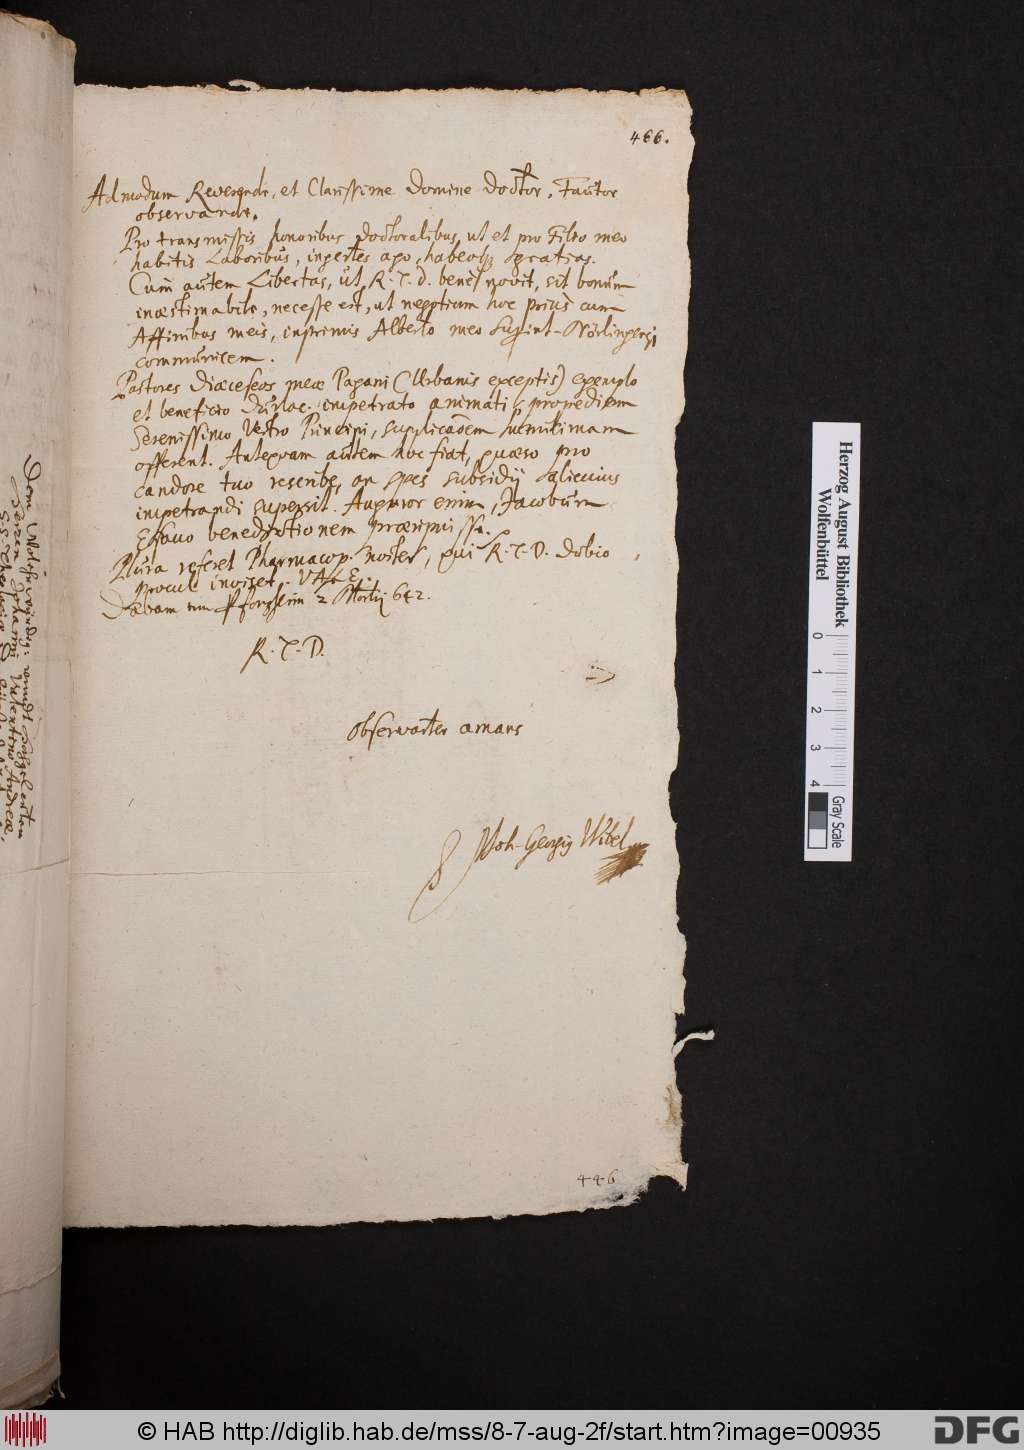 466.
Admodum Reverende, et Clarissime Domine Doctor, Fautor
observande.
Pro transmissis honoribus doctoralibus, ut et pro Filio meo
habitis Laboribus, ingentes ago, habeoq; gratias.
Cum autem Libertas, ut R. T. D. bene novit, sit bonum
inæstimabile, necesse est, ut negotium hoc prius cum
Affinibus meis, inprimis Alberto meo Superint-Nörlingensi
communicem.
Pastores Diæceseos meæ Pagani (Urbanis exceptis) exemplo
et beneficio Durlac. impetrato animati, propediem
Serenissimo Vestro Principi, supplicationem humilimam
offerent. Antequam autem hoc fiat, quæso pro
candore tuo rescribe, an spes subsidij alicuius
impetrandi supersit. Auguror enim, Jacobum
Esavo benedictionem præripuisse.
Plura referet Pharmacop. noster, qui R. T. D. dubio
procul inviset. VALE.
Dabam Pforzheim 2 Martij 642.
R. T. D.
Observanter amans
Joh-Georgig Wibel
446
Herzog August Bibliothek
Wolfenbüttel
0 1 2 3 4
Gray Scale
© HAB http://diglib.hab.de/mss/8-7-aug-2f/start.htm?image=00935
DFG